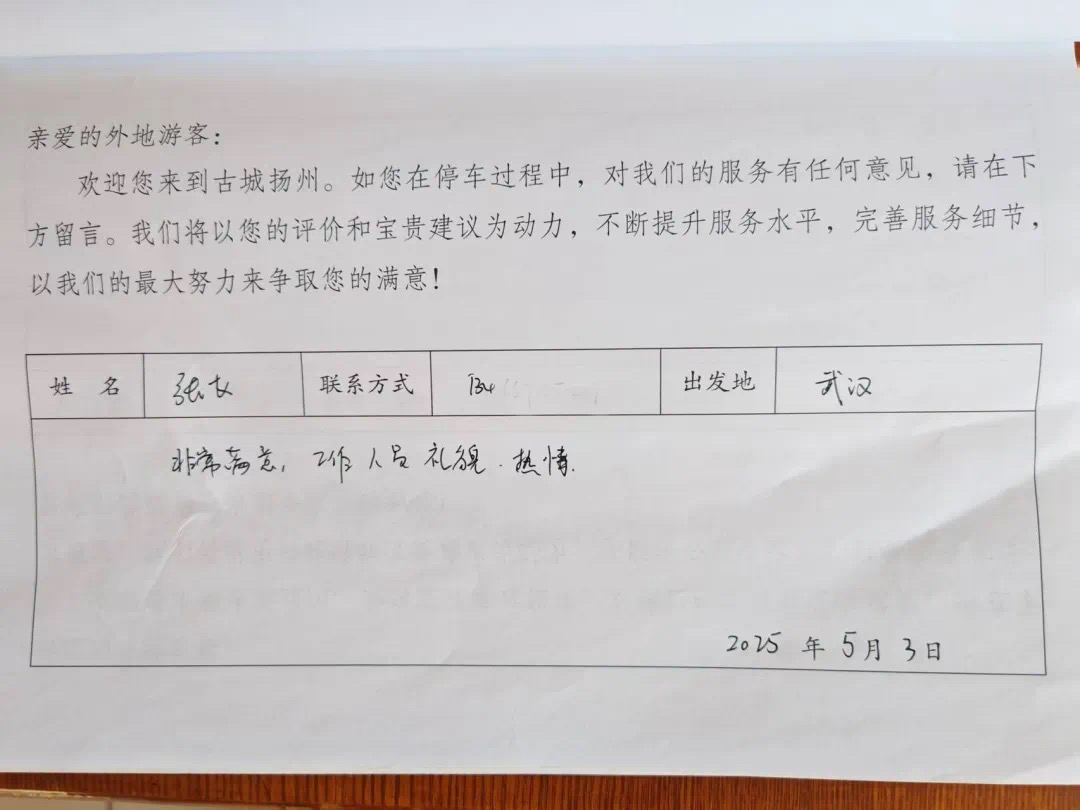 亲爱的外地游客：
欢迎您来到古城扬州。如您在停车过程中，对我们的服务有任何意见，请在下
方留言。我们将以您的评价和宝贵建议为动力，不断提升服务水平，完善服务细节，
以我们的最大努力来争取您的满意！
姓 名 张 联系方式 134 出发地 武汉
非常满意，工作人员礼貌.热情.
2025 年 5月 3日